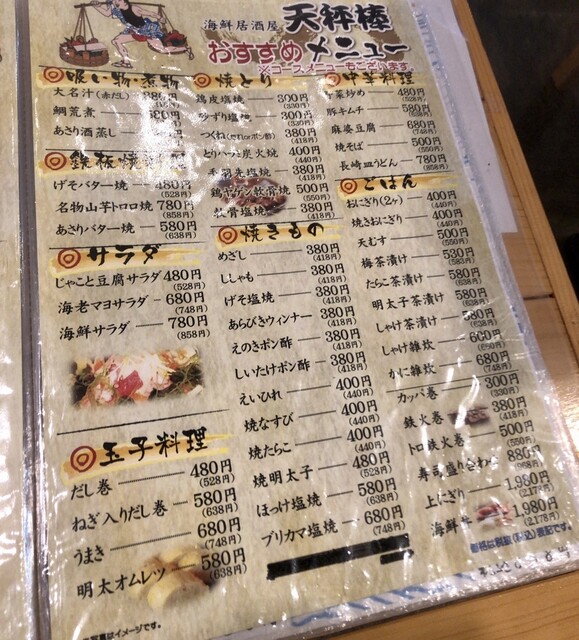 海鮮居酒屋 天秤棒
おすすめメニュー
※コースメニューもございます。
吸い物・煮物
大名汁(赤だし) 380円
(418円)
鯛荒煮 580円
あさり酒蒸し
鉄板焼
げそバター焼 480円
(528円)
名物山芋トロロ焼 780円
(858円)
あさりバター焼 580円
(638円)
サラダ
じゃこと豆腐サラダ 480円
(528円)
海老マヨサラダ 680円
(748円)
海鮮サラダ 780円
(858円)
玉子料理
だし巻 480円
(528円)
ねぎ入りだし巻 580円
(638円)
うまき 680円
(748円)
明太オムレツ 580円
(638円)
※写真はイメージです。
焼とり
鶏皮塩焼 300円
(330円)
砂ずり塩焼 300円
(330円)
つくね(せせりorポン酢) 380円
(418円)
とりハラミ炭火焼 400円
(440円)
手羽先塩焼 380円
(418円)
鶏ヤゲン軟骨焼 500円
(550円)
軟骨塩焼 380円
(418円)
焼きもの
めざし 380円
(418円)
ししゃも 380円
(418円)
げそ塩焼 380円
(418円)
あらびきウィンナー 380円
(418円)
えのきポン酢 380円
(418円)
しいたけポン酢 380円
(418円)
えいひれ 400円
(440円)
焼なすび 400円
(440円)
焼たらこ 400円
(440円)
焼明太子 480円
(528円)
ほっけ塩焼 580円
(638円)
ブリカマ塩焼 680円
(748円)
中華料理
野菜炒め 480円
(528円)
豚キムチ 580円
(638円)
麻婆豆腐 680円
(748円)
焼そば 500円
(550円)
長崎皿うどん 780円
(858円)
ごはん
おにぎり(2ヶ) 400円
(440円)
焼きおにぎり 400円
(440円)
天むす 500円
(550円)
梅茶漬け 530円
(583円)
たらこ茶漬け 580円
(638円)
明太子茶漬け 580円
(638円)
しゃけ茶漬け 580円
(638円)
しゃけ雑炊 600円
(660円)
かに雑炊 680円
(748円)
カッパ巻 300円
(330円)
鉄火巻 380円
(418円)
トロ鉄火巻 500円
(550円)
寿司盛り合わせ 880円
(968円)
上にぎり 1,980円
(2,178円)
海鮮丼 1,980円
(2,178円)
価格は税抜(税込)表記です。